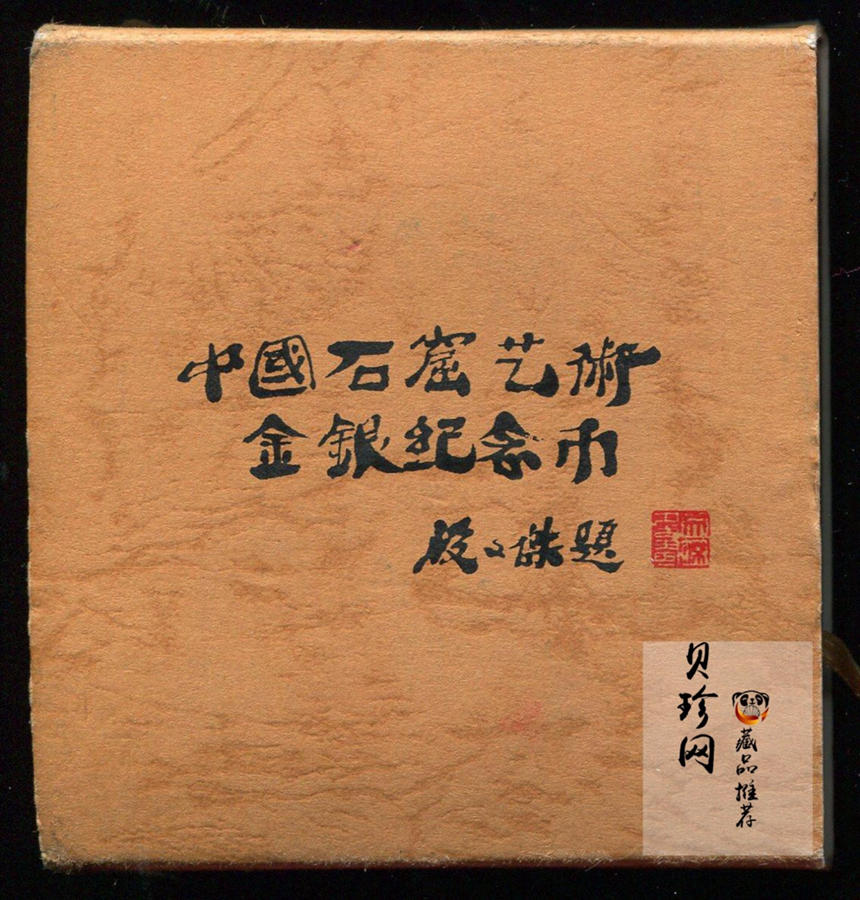 中國石窟艺術
金銀紀念币
段文傑題
贝珍网
藏品推荐